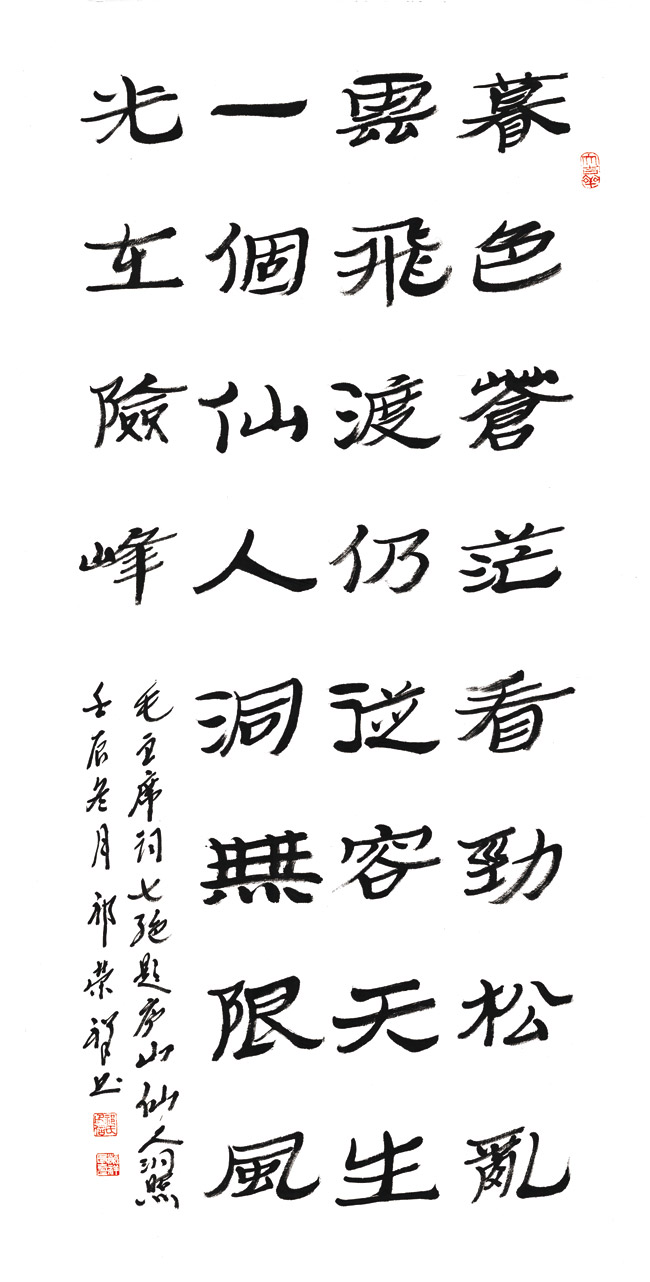 暮色蒼茫看勁松亂
雲飛渡仍從容天生
一個仙人洞無限風
光在險峰
毛主席詞七絕題庐山仙人洞照
壬辰冬月祁荣祥书